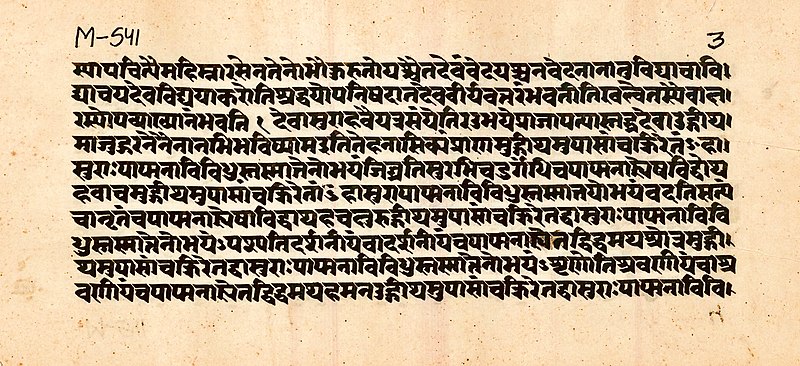 M-541 3
स्यापचित्यै महिम्नारसेन तेनोभौ कुरुतो यश्चैतदेवंवेदयश्चनवेदनानातुविद्याचावि।
द्याचयदेवविद्ययाकरोतिश्रद्धयोपनिषदातदेववीर्यवत्तरंभवतीतिखल्वेतस्यैवाक्ष।
रस्योपव्याख्यानंभवति १ देवासुराहवैयत्रसंयेतिरउभयेप्राजापत्यास्तद्धदेवाउद्गीथ।
माजह्रुरनेनैनानभिभविष्यामइतितेहनासिक्यंप्राणमुद्गीथमुपासांचक्रिरेतंऽहा।
सुराःपाप्मनाविविधुस्तस्मात्तेनोभयंजिघ्रतिसुरभिचदुर्गंधिचपाप्मनाह्येषविद्धोथ
हवाचमुद्गीथमुपासांचक्रिरेतांऽहासुराःपाप्मनाविविधुस्तस्मात्तयोभयंवदतिसत्यं
चानृतंचपाप्मनाह्येषाविद्धाथहचक्षुरुद्गीथमुपासांचक्रिरेतद्धासुराःपाप्मनाविवि
धुस्तस्मात्तेनोभयंऽपश्यतिदर्शनीयंचादर्शनीयंचपाप्मनाह्येतद्विद्धमथहश्रोत्रमुद्गी।
थमुपासांचक्रिरेतद्धासुराःपाप्मनाविविधुस्तस्मात्तेनोभयंऽशृणोतिश्रवणीयंचाश्र
वणीयंचपाप्मनाह्येतद्विद्धमथहमनउद्गीथमुपासांचक्रिरेतद्धासुराःपाप्मनाविवि।